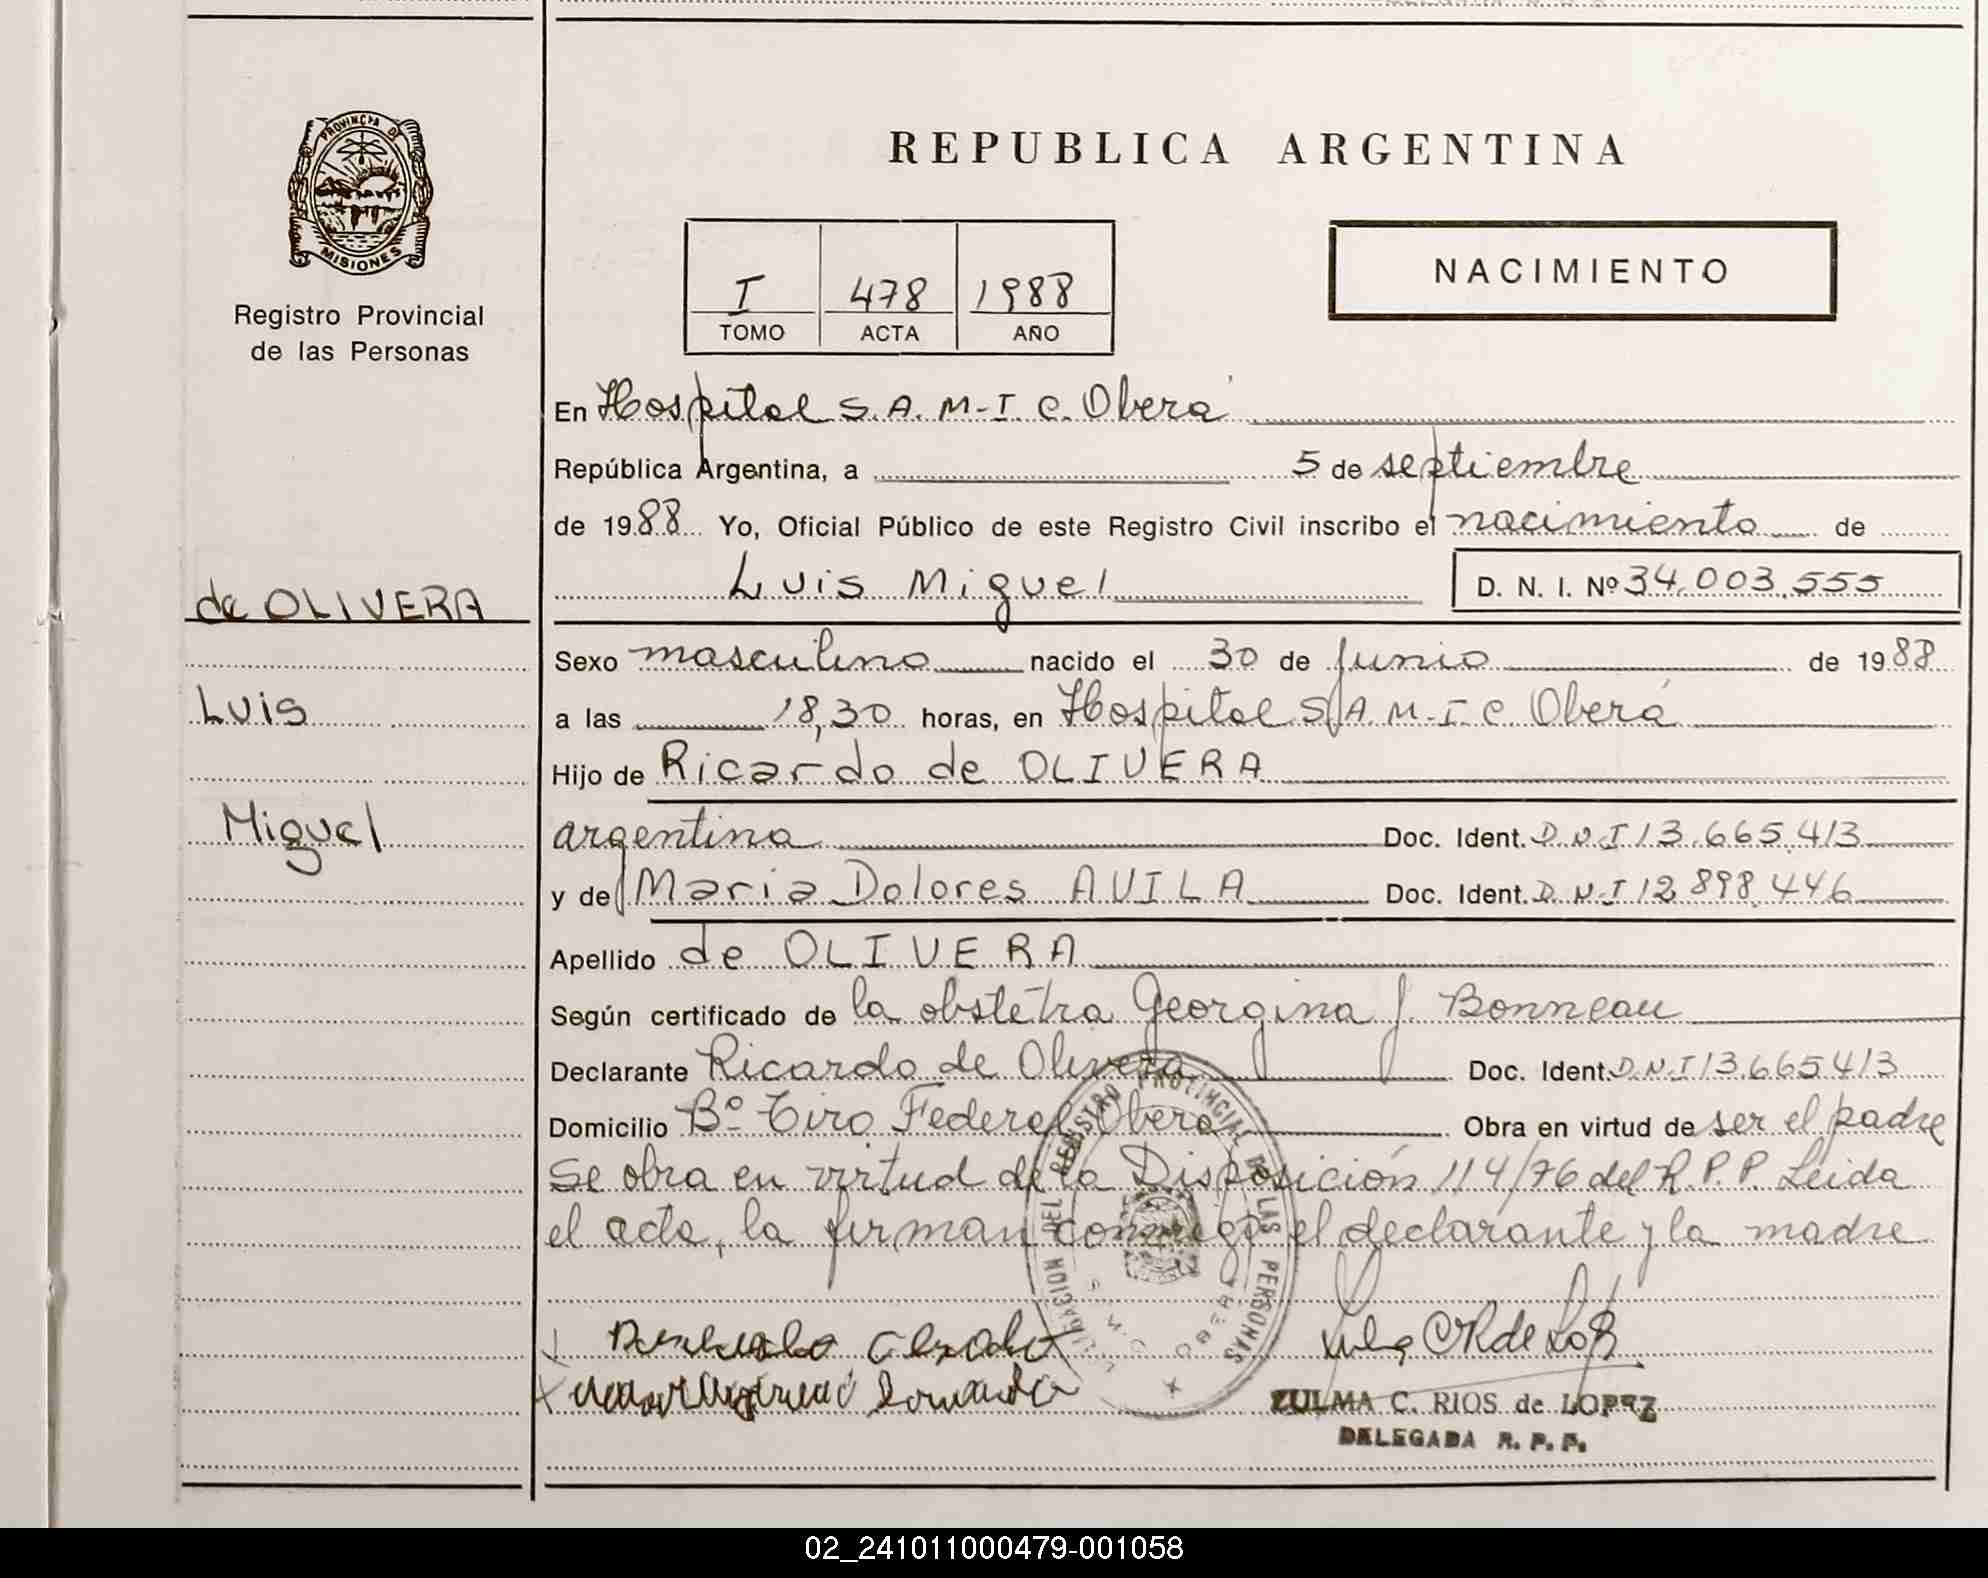 PROVINCIA DE
MISIONES
Registro Provincial
de las Personas
de OLIVERA
Luis
Miguel
REPUBLICA ARGENTINA
I 478 1988
TOMO ACTA AÑO
NACIMIENTO
En Hospital S.A.M-I.C. Oberá
República Argentina, a 5 de septiembre
de 1988 Yo, Oficial Público de este Registro Civil inscribo el nacimiento de
Luis Miguel D. N. I. Nº 34.003.555
Sexo masculino nacido el 30 de Junio de 1988
a las 18,30 horas, en Hospital S.A.M-I.C Oberá
Hijo de Ricardo de OLIVERA
argentina Doc. Ident. D.N.I 13.665.413
y de Maria Dolores AVILA Doc. Ident. D.N.I 12.898.446
Apellido de OLIVERA
Según certificado de la obstétra Georgina J. Bonneau
Declarante Ricardo de Olivera Doc. Ident. D.N.I 13.665413
Domicilio Bº Tiro Federal Oberá Obra en virtud de ser el padre
Se obra en virtud de la Disposición 114/76 del R.P.P. Leida
el acta, la firman conmigo el declarante y la madre
DELEGACION DEL REGISTRO PROVINCIAL DE LAS PERSONAS
OBERA
ZULMA C. RIOS de LOPEZ
DELEGADA R. P. P.
02_241011000479-001058